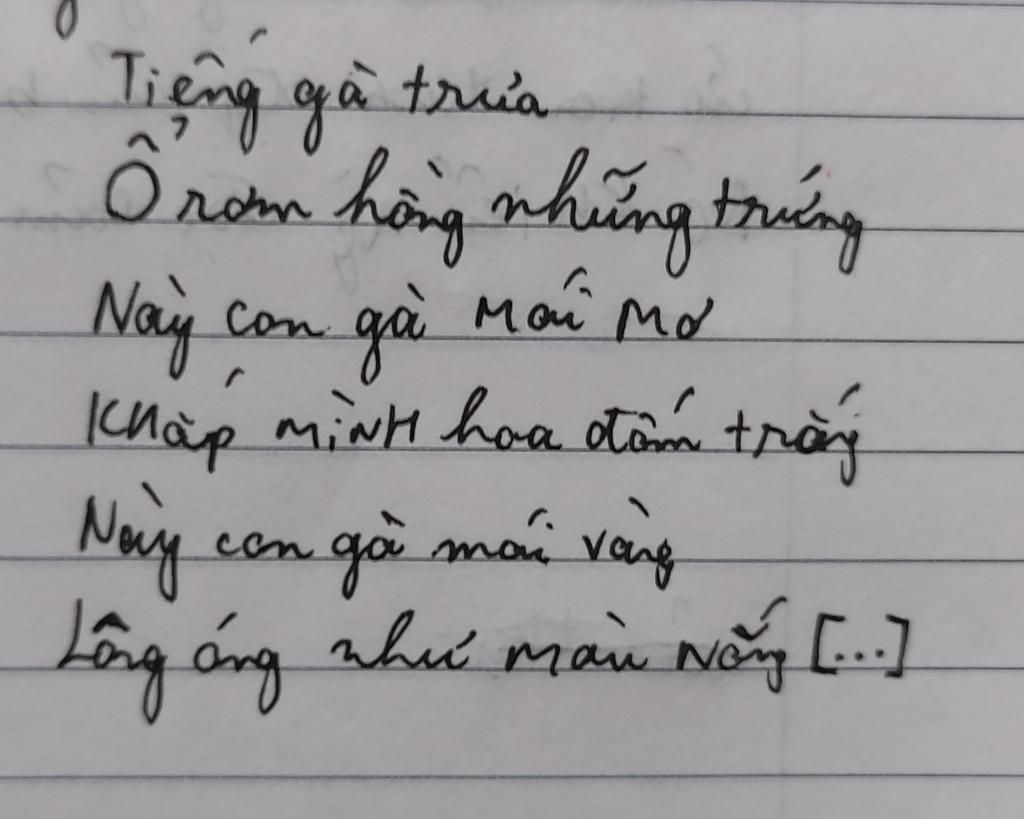 Tiếng gà trưa
Ổ rơm hồng những trứng
Này con gà mái mơ
Khắp mình hoa đốm trắng
Này con gà mái vàng
Lông óng như màu nắng [...]